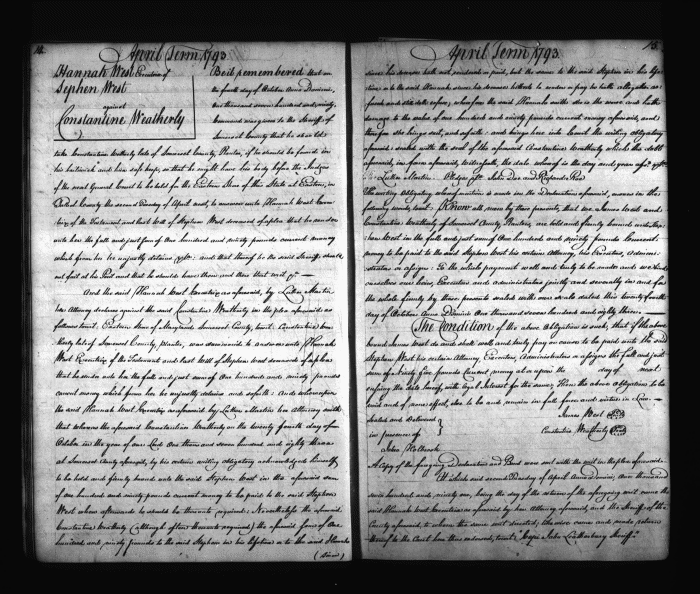 14.
April Term 1793
Hannah West Executrix of
Stephen West
against
Constantine Weatherly
Be it remembered that on
the fourth day of October Anno Domini
One thousand seven hundred and ninety
command was given to the Sheriff of
Somerset County that he should
take Constantine Weatherly late of Somerset County, Planter, if he should be found in
his bailiwick and him safe keep, so that he might have his body before the Judges
of the next General Court to be held for the Eastern Shore of this State at Easton, in
Talbot County the second Tuesday of April next, to answer unto Hannah West Execu-
trix of the Testament and last Will of Stephen West deceased of a plea that he render
unto her the full and just sum of One hundred and ninety pounds current money
which from her he unjustly detains &c. and that thereof he the said Sheriff should
not fail at his Peril and that he should have there and then that writ &c.
And the said Hannah West Executrix as aforesaid, by Luther Martin
her Attorney declares against the said Constantine Weatherly in the plea aforesaid as
follows to wit. Eastern Shore of Maryland Somerset County, to wit: Constantine Wea-
therly late of Somerset County, planter, was summoned to answer unto Hannah
West Executrix of the Testament and last Will of Stephen West deceased of a plea
that he render unto her the full and just sum of One hundred and ninety pounds
current money which from her he unjustly detains and so forth: And whereupon
the said Hannah West Executrix as aforesaid by Luther Martin her Attorney saith
that whereas the aforesaid Constantine Weatherly on the twenty fourth day of
October in the year of our Lord One thousand seven hundred and eighty three
at Somerset County aforesaid, by his certain writing obligatory acknowledged himself
to be held and firmly bound unto the said Stephen West in the aforesaid sum
of one hundred and ninety pounds current money to be paid to the said Stephen
West when afterwards he should be thereunto required: Nevertheless the aforesaid
Constantine Weatherly (although often thereunto required) the aforesaid sum of One
hundred and ninety pounds to the said Stephen in his lifetime or to the said Hannah
(since)
15.
April Term 1793.
since his decease hath not rendered or paid, but the same to the said Stephen in his life-
time or to the said Hannah since his decease hitherto to render or pay he hath altogether re-
fused and still doth refuse; wherefore the said Hannah saith she is the worse and hath
damage to the value of one hundred and ninety pounds current money aforesaid, and
therefore she brings suit, and so forth: and brings here into Court the writing obligatory
aforesaid sealed with the seal of the aforesaid Constantine Weatherly which the debt
aforesaid, in form aforesaid, testifieth, the date whereof is the day and year aforesaid &c.
Luther Martin Pledges &c. Jno. Doe and Richard Roe
The writing Obligatory whereof mention is made in the Declaration aforesaid, ensues in these
following words, to wit: Know all men by these presents, that we James West and
Constantine Weatherly of Somerset County, Planters, are held and firmly bound unto Step-
hen West in the full and just sum of One hundred and ninety pounds Current
money to be paid to the said Stephen West his certain Attorney, his Executors, Admini-
strators or Assigns: To the which payment well and truly to be made and we bind
ourselves our heirs, Executors and Administrators jointly and severally in and for
the whole firmly by these presents sealed with our seals dated this twenty fourth
day of October Anno Domini One thousand seven hundred and eighty three.
The Condition of the above Obligation is such, that if the above
bound James West do and shall well and truly pay or cause to be paid unto the said
Stephen West his certain Attorney, Executors, Administrators or assigns the full and just
sum of Ninety five pounds Current money at or upon the day of next
ensuing the date hereof, with legal Interest for the same, Then the above Obligation to be
void and of none effect, else to be and remain in full force and virtue in Law.
Sealed and Delivered
in presence of
James West (Seal)
Constantine Weatherly (Seal)
John Holbrook
A Copy of the foregoing Declaration and Bond was sent with the writ in the plea aforesaid.
At which said second Tuesday of April Anno Domini, One thousand
seven hundred and ninety one, being the day of the return of the aforegoing writ came the
said Hannah West Executrix as aforesaid by her Attorney aforesaid, and the Sheriff of the
County aforesaid, to whom the same writ directed, likewise came and made return
thereof to the Court here thus endorsed, to wit: "Cepi John Leatherbury Sheriff"